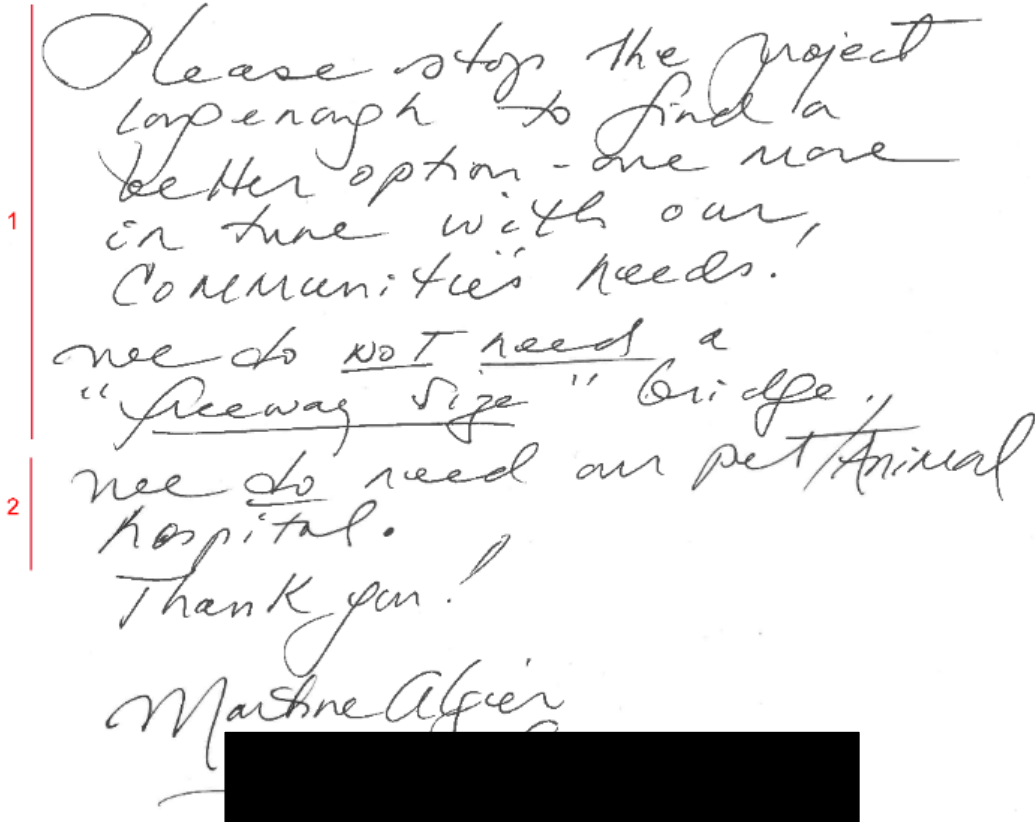 Please stop the project
long enough to find a
better option - one more
in tune with our
Communities needs.
1
we do NOT need a
"freeway size" bridge.
we do need our pet/Animal
2
hospital.
Thank you!
Martine Algier